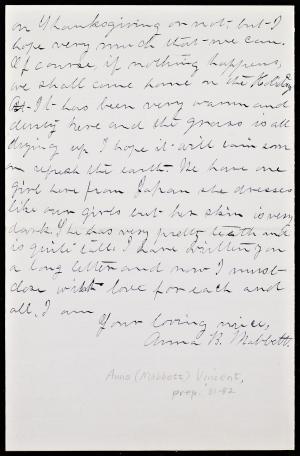 on Thanksgiving or not: but I
hope very much that we can.
Of course, if nothing happens,
we shall come home in the Holidays
It has been very warm and
dusty here and the grass is all
drying up. I hope it will rain soon
an refresh the earth. We have one
girl here from Japan she dresses
like our girls but her skin is very
dark. She has very pretty teeth and
is quite tall. I have written you
a long letter and now I must
close with love for each and
all. I am
Your loving niece,
Anna B. Mabbett.
Anna (Mabbett) Vincent,
prep. '81-82